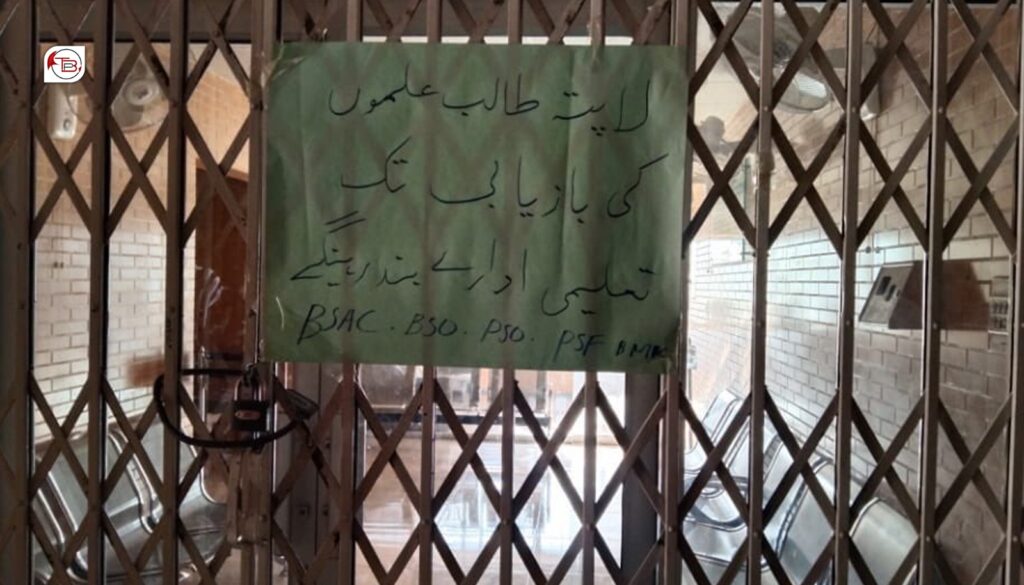 TB
لاپتہ طالب علموں
کی بازیابی تک
تعلیمی ادارے بند رہینگے
BSAC . BSO . PSO . PSF